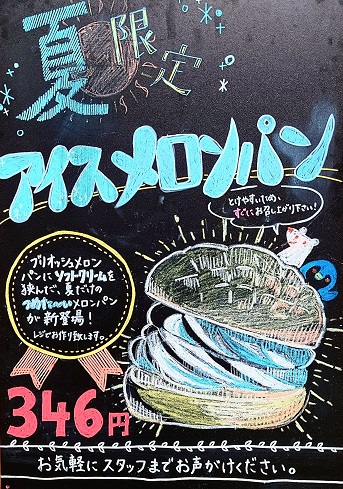 夏限定
アイスメロンパン
とけやすいため、
すぐにお召し上がり下さい！
ブリオッシュメロン
パンにソフトクリームを
挟んだ、夏だけの
つめた〜いメロンパン
が新登場！
レジでお作り致します。
346円
お気軽にスタッフまでお声がけください。